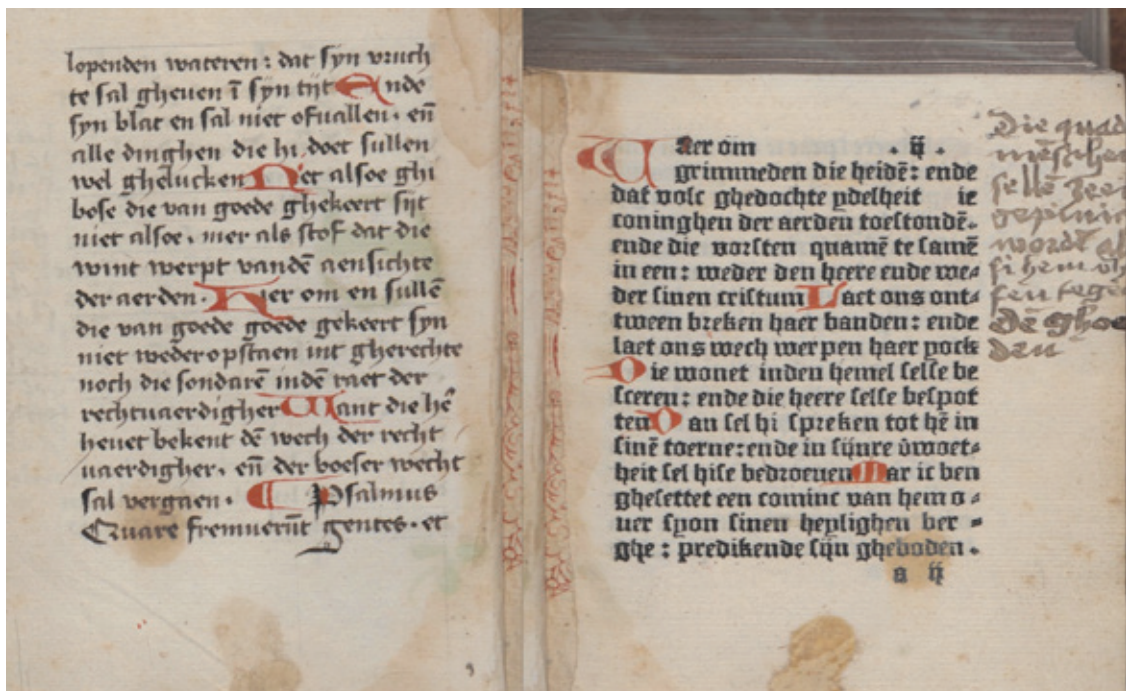 lopenden wateren : dat syn vruch
te sal gheuen ī syn tijt Ende
syn blat en sal niet ofuallen · eñ
alle dinghen die hi doet sullen
wel ghelucken Niet alsoe ghi
bose die van goede ghekeert sijt
niet alsoe · mer als stof dat die
wint werpt vandē aensichte
der aerden · Hier om en sullē
die van goede goede gekeert syn
niet wederopstaen int gherechte
noch die sondarē indē raet der
rechtuaerdigher Want die hē
heuet bekent dē wech der recht
uaerdigher · eñ der boeser wecht
sal vergaen · Psalmus
Quare fremuerūt gentes · et
Waer om · ij ·
grimmeden die heidē : ende
dat volc ghedochte ydelheit ie
coninghen der aerden toestondē·
ende die vorsten quamē te samē
in een : weder den heere ende we⸗
der sinen cristum Laet ons ont⸗
tween breken haer banden : ende
laet ons wech werpen haer yock
Die wonet inden hemel selse be
sceren : ende die heere selse bespot
ten Dan sel hi spreken tot hē in
sinē toerne : ende in sijnre v̄woet⸗
heit sel hise bedroeuen Mar ic ben
ghesettet een coninc van hem o⸗
uer syon sinen heylighen ber⸗
ghe : predikende sijn gheboden ·
a ij
die quad
mēschen
sellē
wordē
si hem
sen tegē
dē ghoe
den